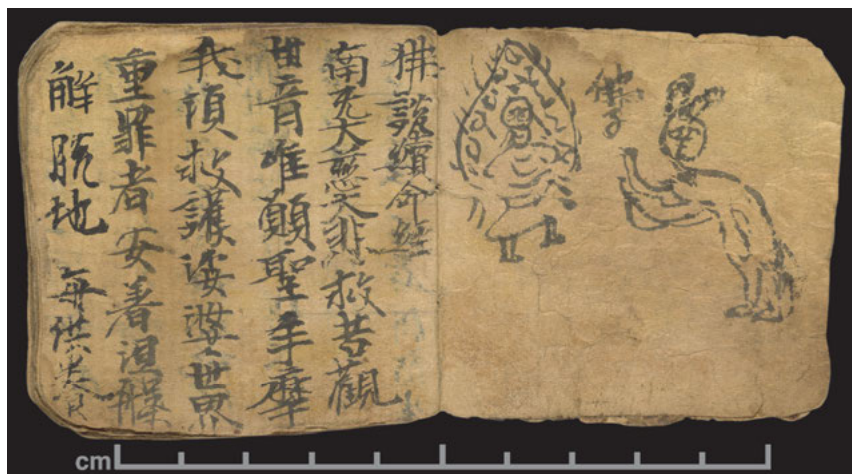 佛子
佛說續命經
南无大慈大悲救苦觀
世音唯願聖手摩
我頂救護娑婆世界
重罪者安着解
解脫地 每供養
cm